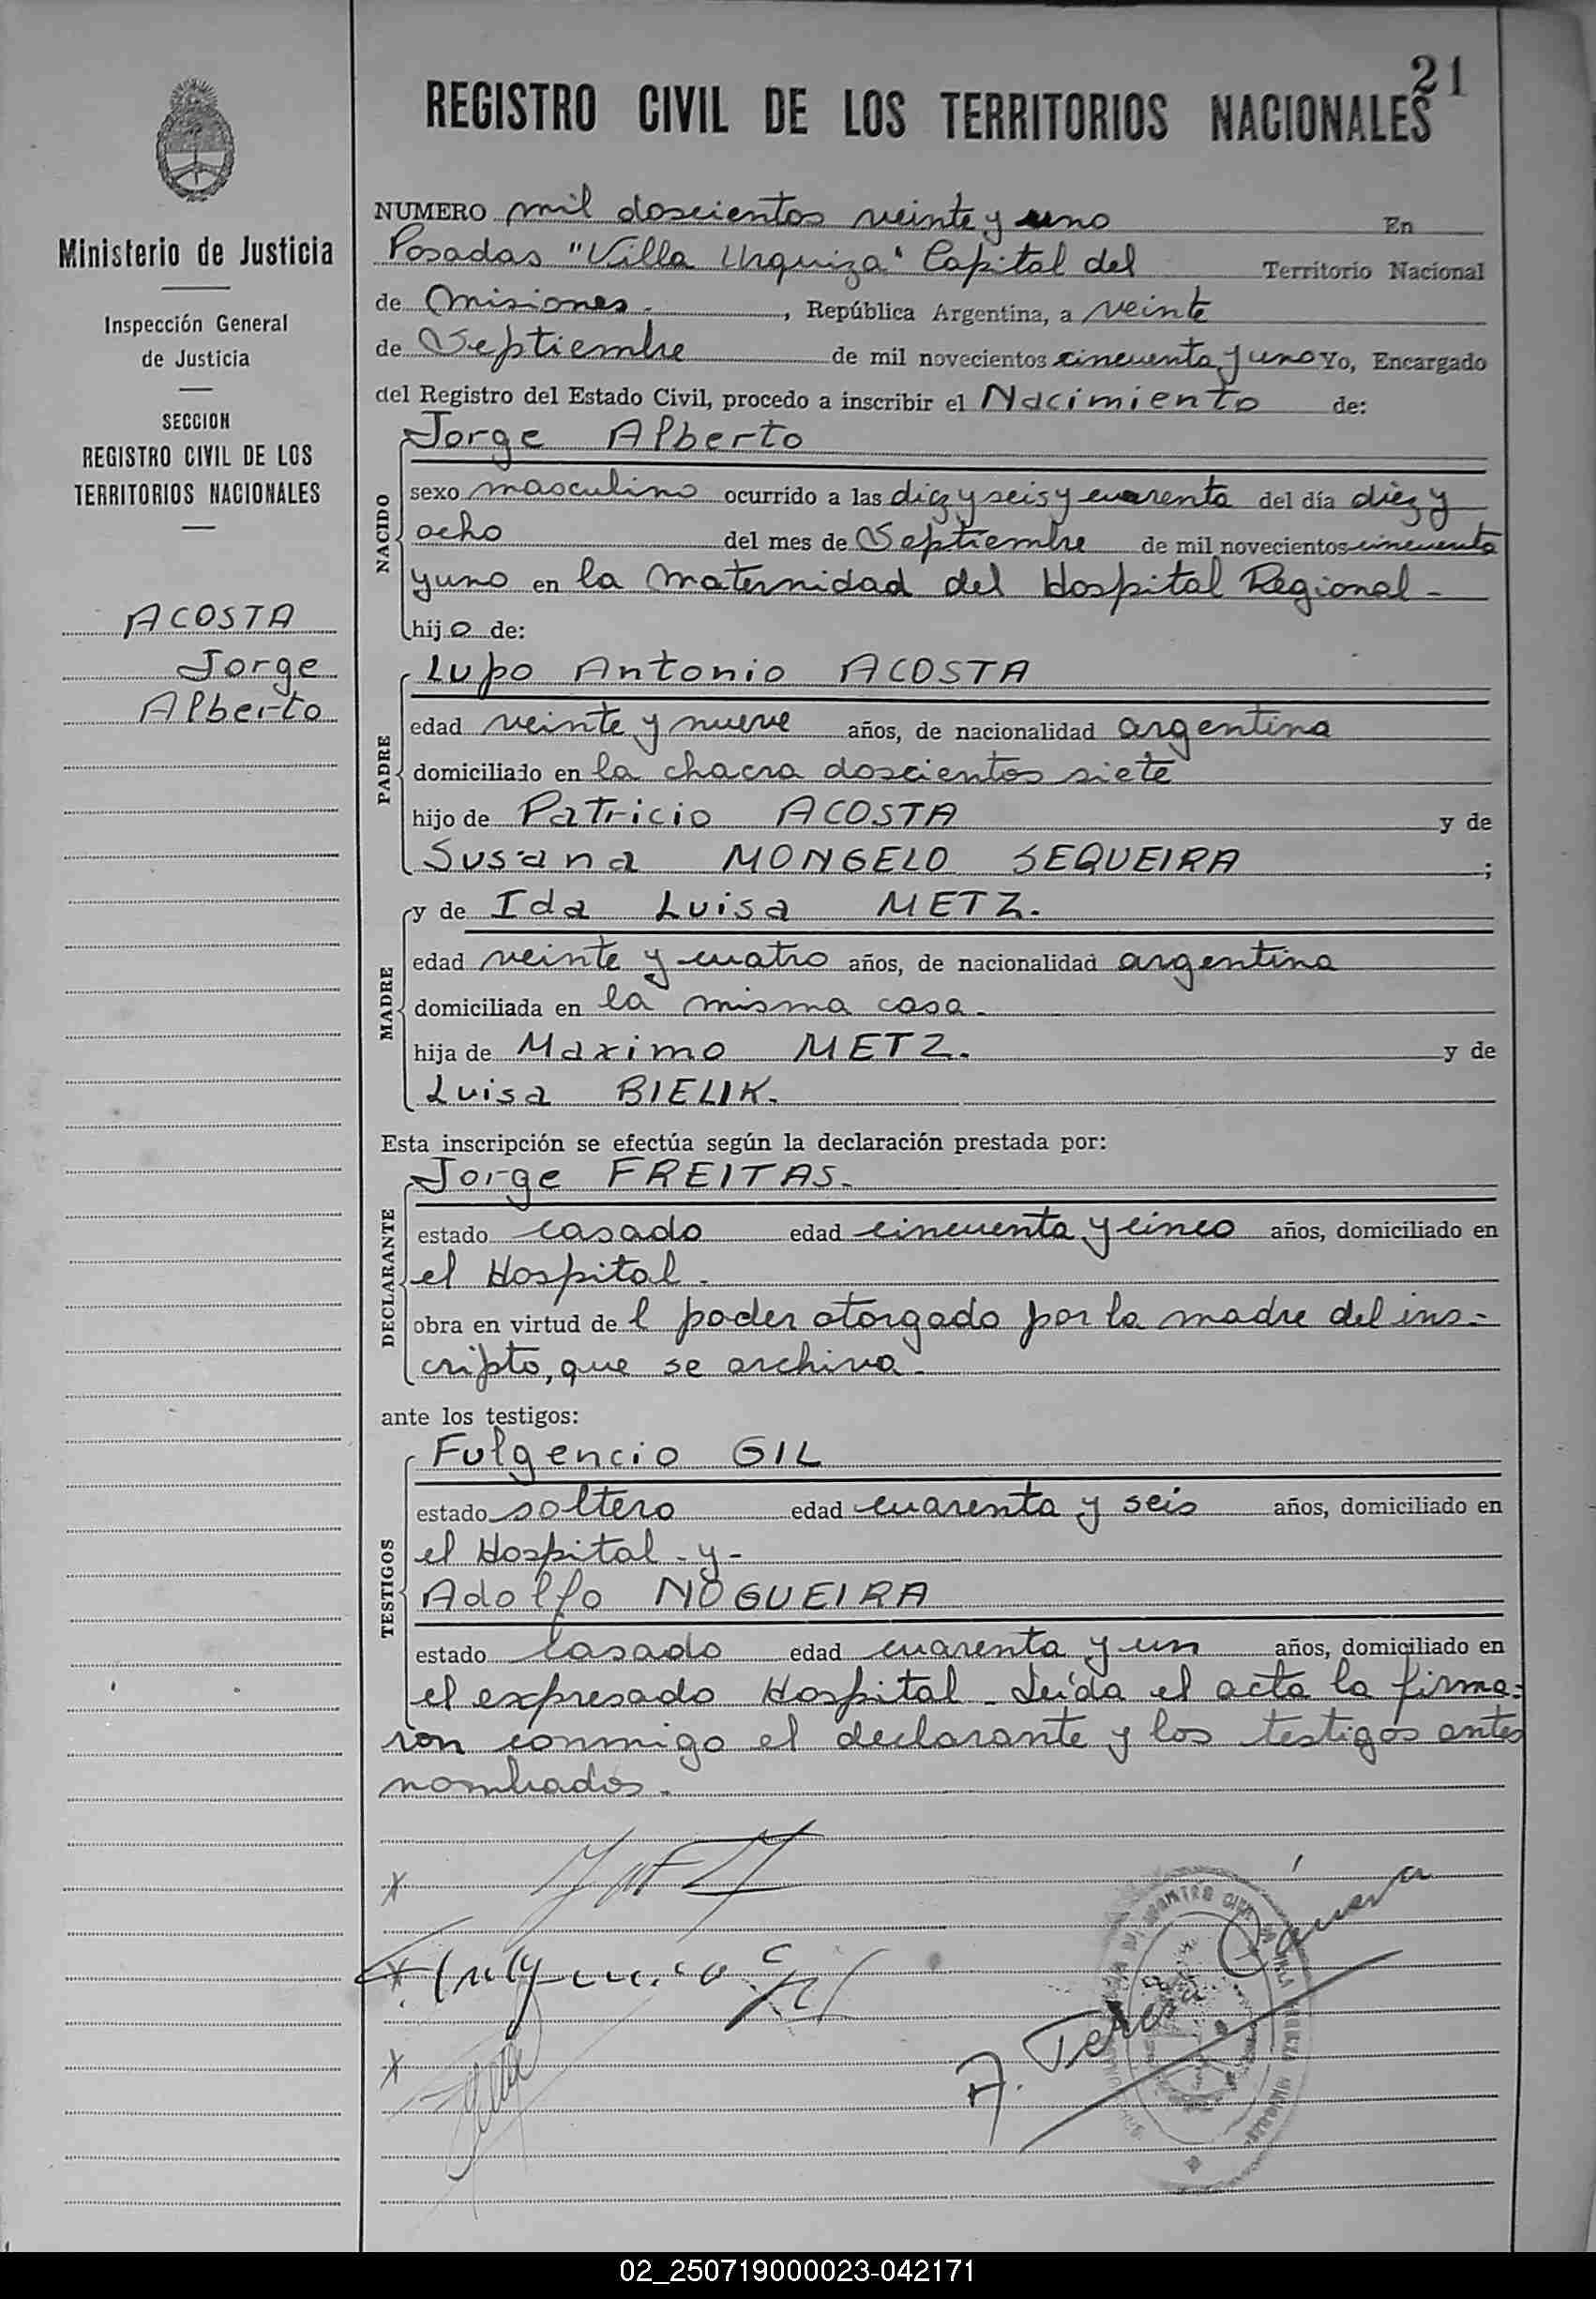 21
REGISTRO CIVIL DE LOS TERRITORIOS NACIONALES
Ministerio de Justicia
Inspección General
de Justicia
SECCION
REGISTRO CIVIL DE LOS
TERRITORIOS NACIONALES
ACOSTA
Jorge
Alberto
NUMERO mil doscientos veinte y uno En
Posadas "Villa Urquiza" Capital del Territorio Nacional
de Misiones.-, República Argentina, a veinte
de Septiembre de mil novecientos cincuenta y uno Yo, Encargado
del Registro del Estado Civil, procedo a inscribir el Nacimiento de:
NACIDO
Jorge Alberto
sexo masculino ocurrido a las diez y seis y cuarenta del día diez y
ocho del mes de Septiembre de mil novecientos cincuenta
y uno en la Maternidad del Hospital Regional-
hijo de:
PADRE
Lupo Antonio ACOSTA
edad veinte y nueve años, de nacionalidad argentina
domiciliado en la chacra doscientos siete
hijo de Patricio ACOSTA y de
Susana MONGELO SEQUEIRA ;
MADRE
y de Ida Luisa METZ.
edad veinte y cuatro años, de nacionalidad argentina
domiciliada en la misma casa.
hija de Maximo METZ. y de
Luisa BIELIK.
Esta inscripción se efectúa según la declaración prestada por:
DECLARANTE
Jorge FREITAS.
estado casado edad cincuenta y cinco años, domiciliado en
el Hospital.
obra en virtud del poder otorgado por la madre del ins-
cripto, que se archiva.
ante los testigos:
TESTIGOS
Fulgencio GIL
estado soltero edad cuarenta y seis años, domiciliado en
el Hospital - y -
Adolfo NOGUEIRA
estado casado edad cuarenta y un años, domiciliado en
el expresado Hospital. Leída el acta la firma-
ron conmigo el declarante y los testigos antes
nombrados.
Fulgencio Gil
A. Teresa
02_250719000023-042171